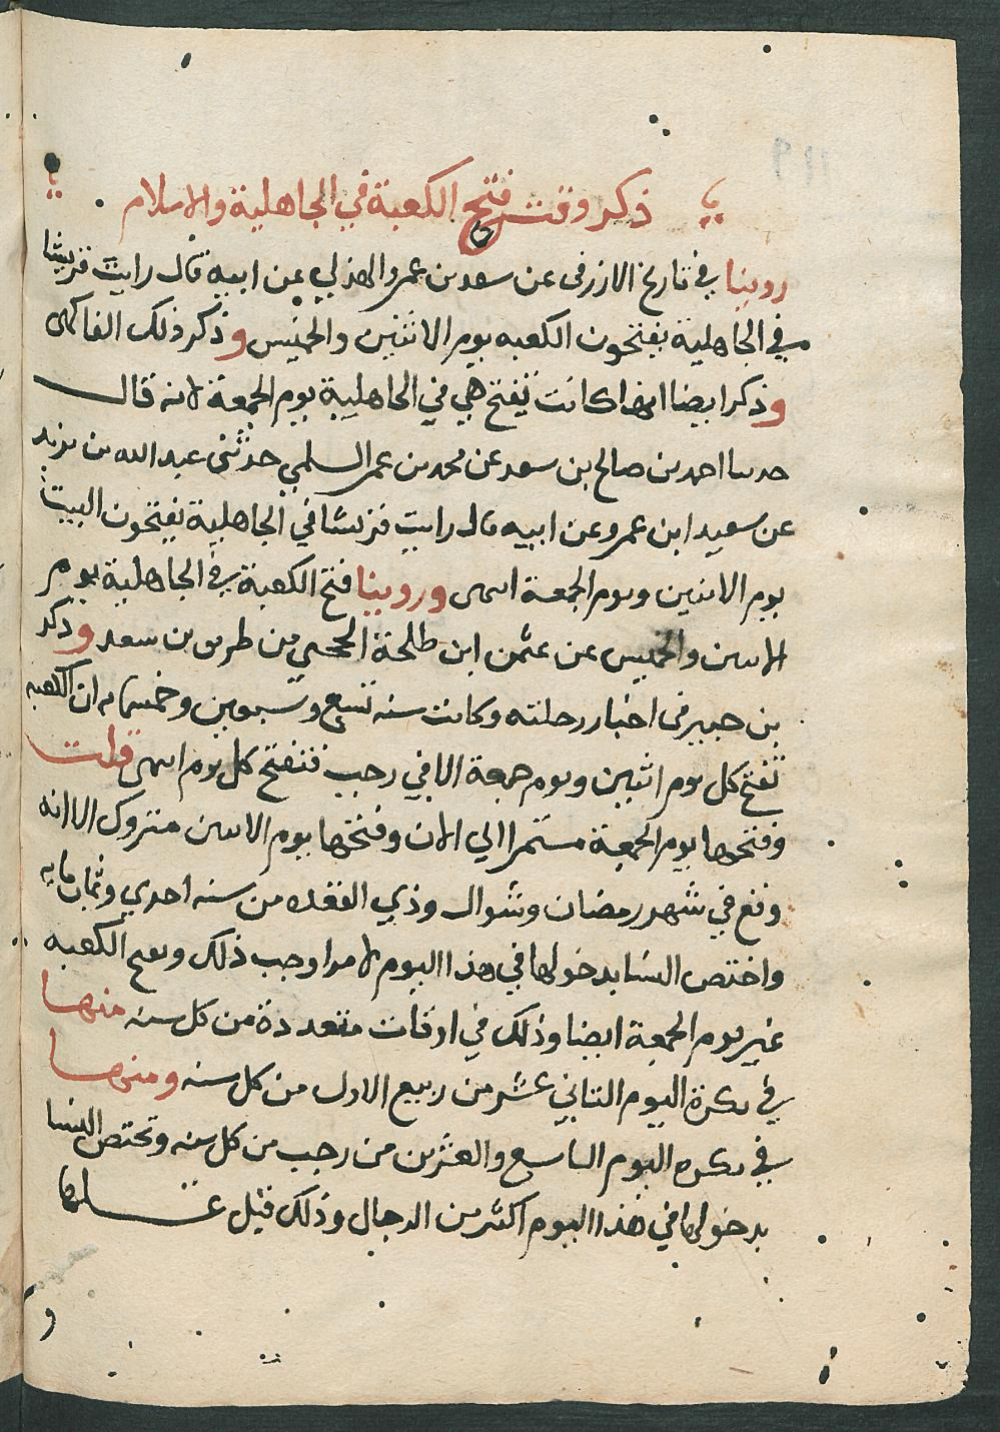 ذكر وقت فتح الكعبة في الجاهلية والاسلام
روينا في تاريخ الازرقى عن سعد بن عمرو الهذلي عن ابيه قال رايت قريشا
في الجاهلية يفتحون الكعبه يوم الاثنين والخميس وذكر ذلك الفاكهى
وذكر ايضا انها كانت تفتح هي في الجاهلية يوم الجمعة لانه قال
حدثنا احمد بن صالح بن سعد عن محمد بن عمر السلمي حدثنى عبد الله بن يزيد
عن سعيد ابن عمرو عن ابيه قال رايت قريشا في الجاهلية يفتحون البيت
يوم الاثنين ويوم الجمعة انتهى وروينا فتح الكعبة في الجاهلية يوم
الاثنين والخميس عن عثمن ابن طلحة الحجبي من طريق بن سعد وذكر
بن جبير فى اخبار رحلته وكانت سنه تسع وسبعين وخمسمايه ان الكعبه
تفتح كل يوم اثنين ويوم جمعة الا في رجب فتفتح كل يوم انتهى قلت
وفتحها يوم الجمعة مستمرا الي الان وفتحها يوم الاثنين متروك الا انه
وقع في شهر رمضان وشوال وذي القعده من سنه احدي وثمان مايه
واختص النسا بدخولها في هذا اليوم لامر اوجب ذلك وتفتح الكعبه
غير يوم الجمعة ايضا وذلك في اوقات متعددة من كل سنه منها
في بكرة اليوم الثاني عشر من ربيع الاول من كل سنه ومنها
في بكره اليوم التاسع والعشرين من رجب من كل سنه وتختص النسا
بدخولها في هذا اليوم اكثر من الرجال وذلك قبل غسلها